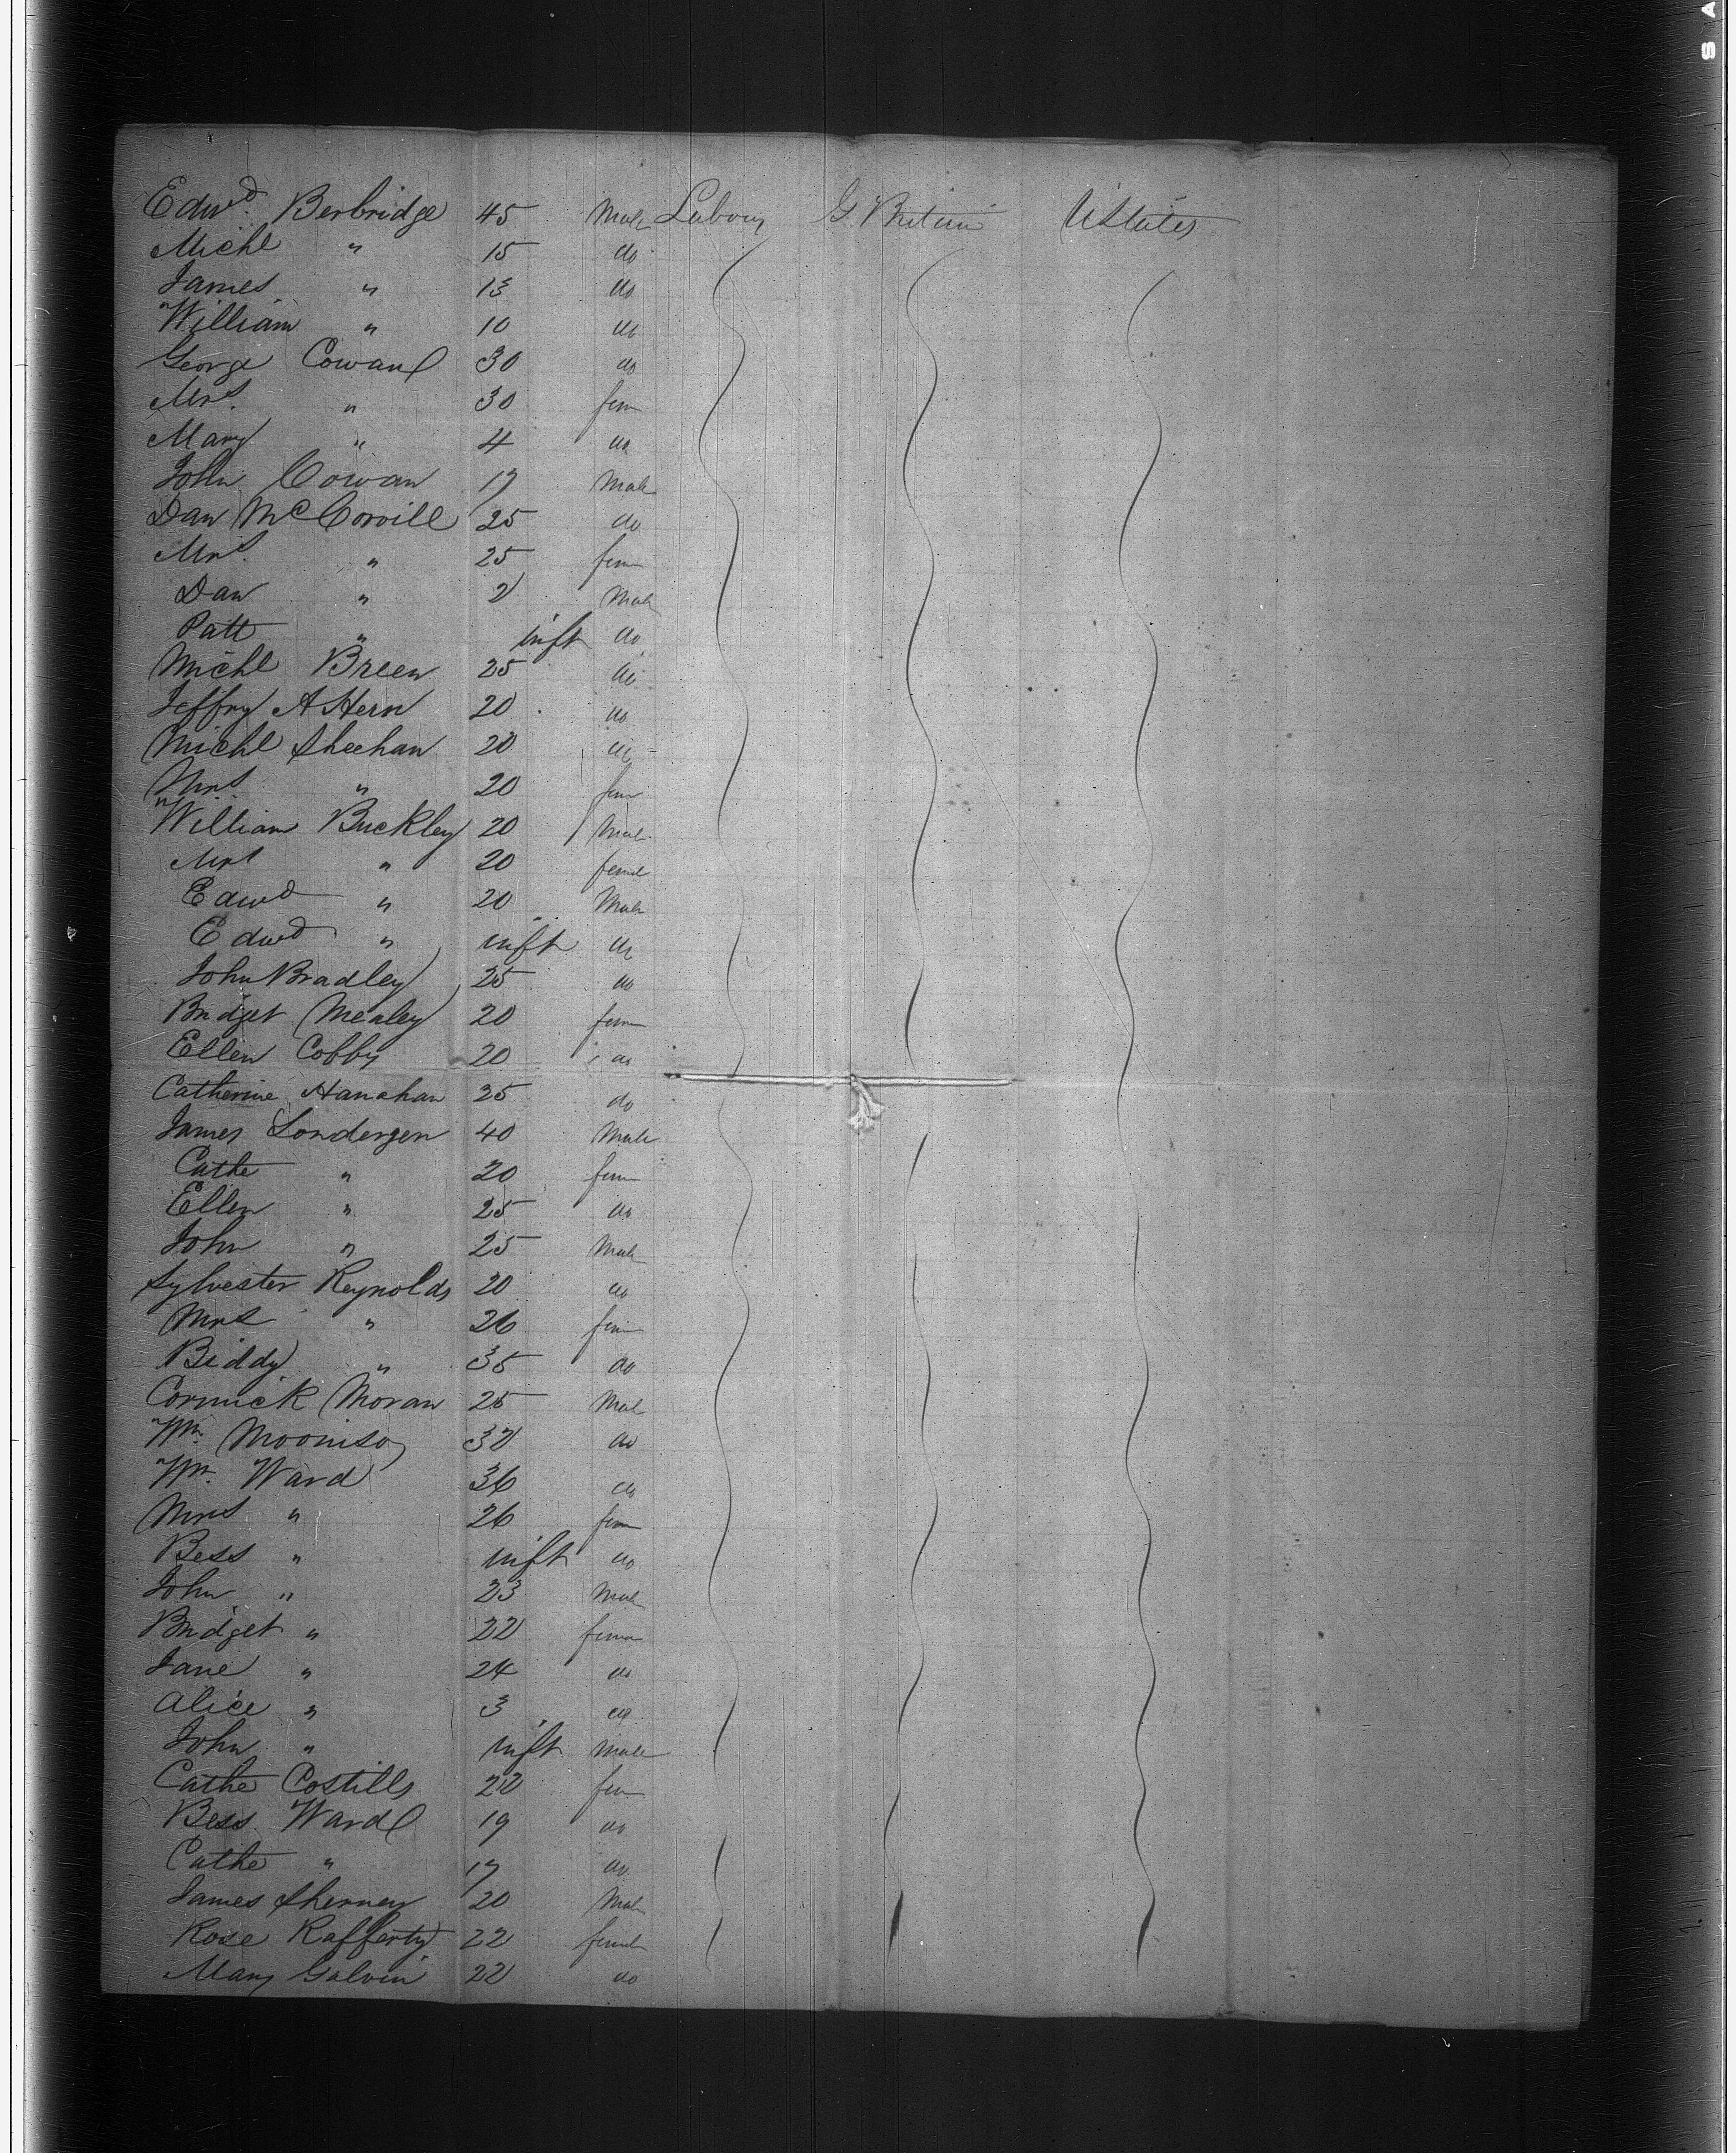 Edwd. Berbridge 45 Male Labour G. Britain U States
Michl " 15 do
James " 13 do
William " 10 do
George Cowan 30 do
Mrs. " 30 fem
Mary " 4 do
John Cowan 17 Male
Dan McCorvill 25 do
Mrs. " 25 fem
Dan " 2 Male
Patt " inft do
Michl Breen 25 do
Jeffry AHern 20 do
Michl Sheehan 20 do
Mrs " 20 fem
William Buckley 20 Male
Mrs " 20 femal
Edwd " 20 Male
Edwd " inft do
John Bradley 25 do
Bridget Mealey 20 fem
Ellen Cobby 20 do
Catherine Hanahan 35 do
James Londergen 40 Male
Cathe " 20 fem
Ellen " 25 do
John " 25 Male
Sylvester Reynolds 20 do
Mrs " 26 fem
Biddy " 35 do
Cormick Moran 25 Mal
Wm. 32 do
Wm. Ward 36 do
Mrs " 26 fem
Bess " inft do
John " 23 Male
Bridget " 22 fema
Jane " 24 do
Alice " 3 do
John " inft male
Cathe Costills 22 fem
Bess. Ward 19 do
Cathe " 17 do
James 20 Male
Rose Rafferty 22 femal
Mary Galvin 22 do
S A